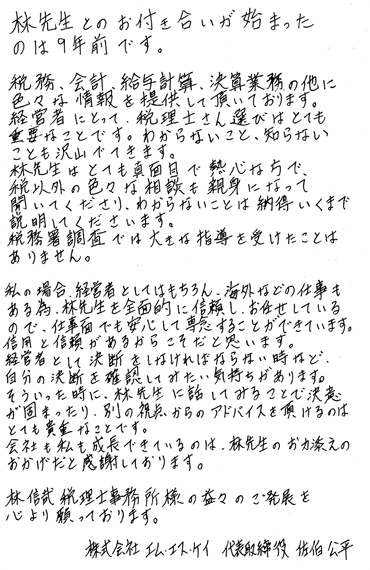 林先生とのお付き合いが始まった
のは9年前です。
税務、会計、給与計算、決算業務の他に
色々な情報を提供して頂いております。
経営者にとって、税理士さん選びはとても
重要なことです。わからないこと、知らない
ことも沢山でてきます。
林先生はとても真面目で熱心な方で、
税以外の色々な相談も親身になって
聞いてくださり、わからないことは納得いくまで
説明してくださいます。
税務署調査では大きな指導を受けたことは
ありません。
私の場合、経営者としてはもちろん、海外などの仕事も
ある為、林先生を全面的に信頼し、お任せしている
ので、仕事面でも安心して専念することができています。
信用と信頼があるからこそだと思います。
経営者として決断をしなければならない時など、
自分の決断を確認してみたい気持ちがあります。
そういった時に、林先生に話してみることで決意
が固まったり、別の視点からのアドバイスを頂けるのは
とても貴重なことです。
会社も私も成長できているのは、林先生のお力添えの
おかげだと感謝しております。
林信武税理士事務所様の益々のご発展を
心より願っております。
株式会社 エム・エス・ケイ 代表取締役 佐伯公平